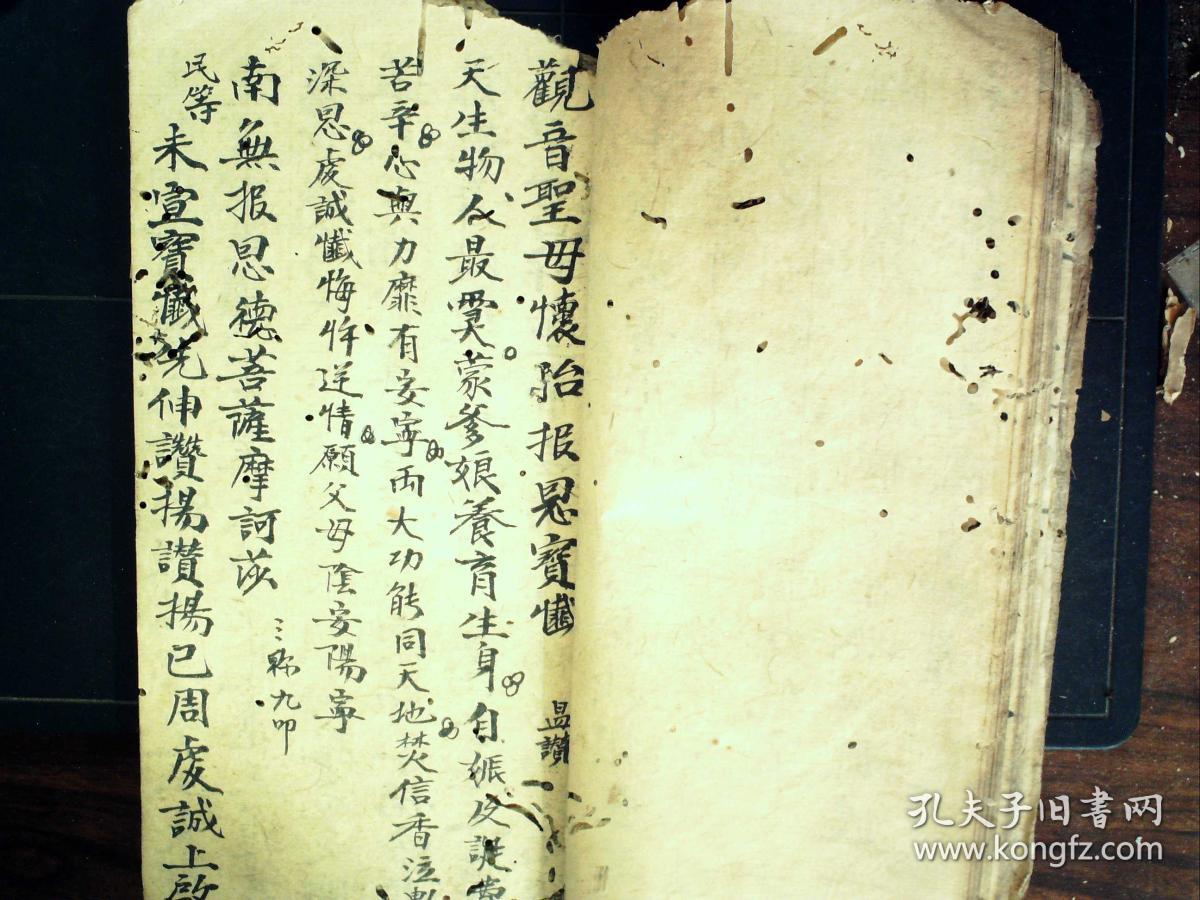 觀音聖母懷胎报恩寳懺 昷讚
天生物及最𤔡蒙爹娘養育生身自娠及誕
苦辛心與力靡有安寜両大功能同天地焚信香泣
深恩虔誠懺悔忤逆情願父母陰安陽寜
南無报恩德菩薩摩訶莎 三称九叩
民等
未宣寳懺先伸讚揚讚揚已周虔誠上啟
孔夫子旧书网
www.kongfz.com